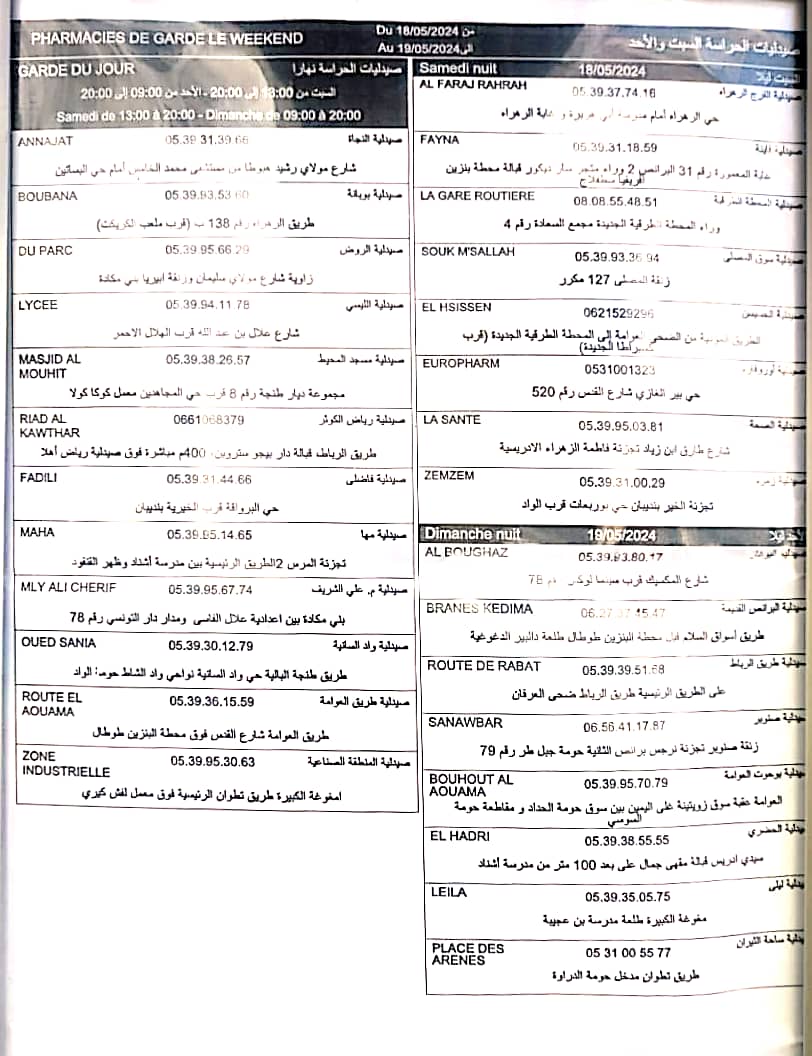 PHARMACIES DE GARDE LE WEEKEND
Du 18/05/2024 من
Au 19/05/2024 الى
صيدليات الحراسة السبت والأحد
GARDE DU JOUR صيدليات الحراسة نهارا
السبت من 13:00 إلى 20:00 - الأحد من 09:00 إلى 20:00
Samedi de 13:00 à 20:00 - Dimanche de 09:00 à 20:00
ANNAJAT 05.39.31.39.66 صيدلية النجاة
شارع مولاي رشيد هبوطا من مستشفى محمد الخامس أمام حي البساتين
BOUBANA 05.39.93.53.60 صيدلية بوبانة
طريق الزهراء رقم 138 ب (قرب ملعب الكريكت)
DU PARC 05.39.95.66.29 صيدلية الروض
زاوية شارع مولاي سليمان وزنقة ابيريا بني مكادة
LYCEE 05.39.94.11.78 صيدلية الليسي
شارع علال بن عبد الله قرب الهلال الاحمر
MASJID AL MOUHIT 05.39.38.26.57 صيدلية مسجد المحيط
مجموعة ديار طنجة رقم 8 قرب حي المجاهدين معمل كوكا كولا
RIAD AL KAWTHAR 0661068379 صيدلية رياض الكوثر
طريق الرباط، قبالة دار بيجو ستروين، 400م مباشرة فوق صيدلية رياض أهلا
FADILI 05.39.31.44.66 صيدلية فاضلي
حي البرواقة قرب الخيرية بنديبان
MAHA 05.39.95.14.65 صيدلية مها
تجزئة المرس 2الطريق الرئيسية بين مدرسة أشناد وظهر القنفود
MLY ALI CHERIF 05.39.95.67.74 صيدلية م. علي الشريف
بني مكادة بين اعدادية علال الفاسي ومدار دار التونسي رقم 78
OUED SANIA 05.39.30.12.79 صيدلية واد السانية
طريق طنجة البالية حي واد السانية نواحي واد الشاط حومة الواد
ROUTE EL AOUAMA 05.39.36.15.59 صيدلية طريق العوامة
طريق العوامة شارع القدس فوق محطة البنزين طوطال
ZONE INDUSTRIELLE 05.39.95.30.63 صيدلية المنطقة الصناعية
امغوغة الكبيرة طريق تطوان الرئيسية فوق معمل لفش كيري
Samedi nuit 18/05/2024 السبت ليلا
AL FARAJ RAHRAH 05.39.37.74.16 صيدلية الفرج الزهراء
حي الزهراء أمام مدرسة أبي هريرة و غابة الزهراء
FAYNA 05.39.31.18.59 صيدلية فاينة
غابة المعمورة رقم 31 البرانص 2 وراء متجر سار ديكور قبالة محطة بنزين
أفريقيا مسطفلاج
LA GARE ROUTIERE 08.08.55.48.51 صيدلية المحطة الطرقية
وراء المحطة الطرقية الجديدة مجمع السعادة رقم 4
SOUK M'SALLAH 05.39.93.36.94 صيدلية سوق المصلى
زنقة المصلى 127 مكرر
EL HSISSEN 0621529296 صيدلية الحسيسن
الطريق من الضحى العوامة إلى المحطة الطرقية الجديدة (قرب
الجديدة)
EUROPHARM 0531001323 صيدلية أوروفارم
حي بير الغازي شارع القدس رقم 520
LA SANTE 05.39.95.03.81 صيدلية الصحة
شارع طارق ابن زياد تجزئة فاطمة الزهراء الادريسية
ZEMZEM 05.39.31.00.29 صيدلية زمزم
تجزئة الخير بنديبان حي بوربعات قرب الواد
Dimanche nuit 19/05/2024 الأحد ليلا
AL BOUGHAZ 05.39.93.80.17 صيدلية البوغاز
شارع المكسيك قرب سينما لوكس رقم 78
BRANES KEDIMA 06.27.37.45.47 صيدلية البرانص القديمة
طريق أسواق السلام قبل محطة البنزين طوطال طلعة دالبير الدغوغية
ROUTE DE RABAT 05.39.39.51.68 صيدلية طريق الرباط
على الطريق الرئيسية طريق الرباط ضحى العرفان
SANAWBAR 06.56.41.17.87 صيدلية صنوبر
زنقة صنوبر تجزئة نرجس برانص الثانية حومة جبل طر رقم 79
BOUHOUT AL AOUAMA 05.39.95.70.79 صيدلية بوحوت العوامة
العوامة عقبة سوق زويتينة على اليمين بين سوق حومة الحداد و مقاطعة حومة
السوسي
EL HADRI 05.39.38.55.55 صيدلية الحضري
سيدي ادريس قبالة مقهى جمال على بعد 100 متر من مدرسة أشناد
LEILA 05.39.35.05.75 صيدلية ليلى
مغوغة الكبيرة طلعة مدرسة بن عجيبة
PLACE DES ARENES 05 31 00 55 77 صيدلية ساحة الثيران
طريق تطوان مدخل حومة الدراوة